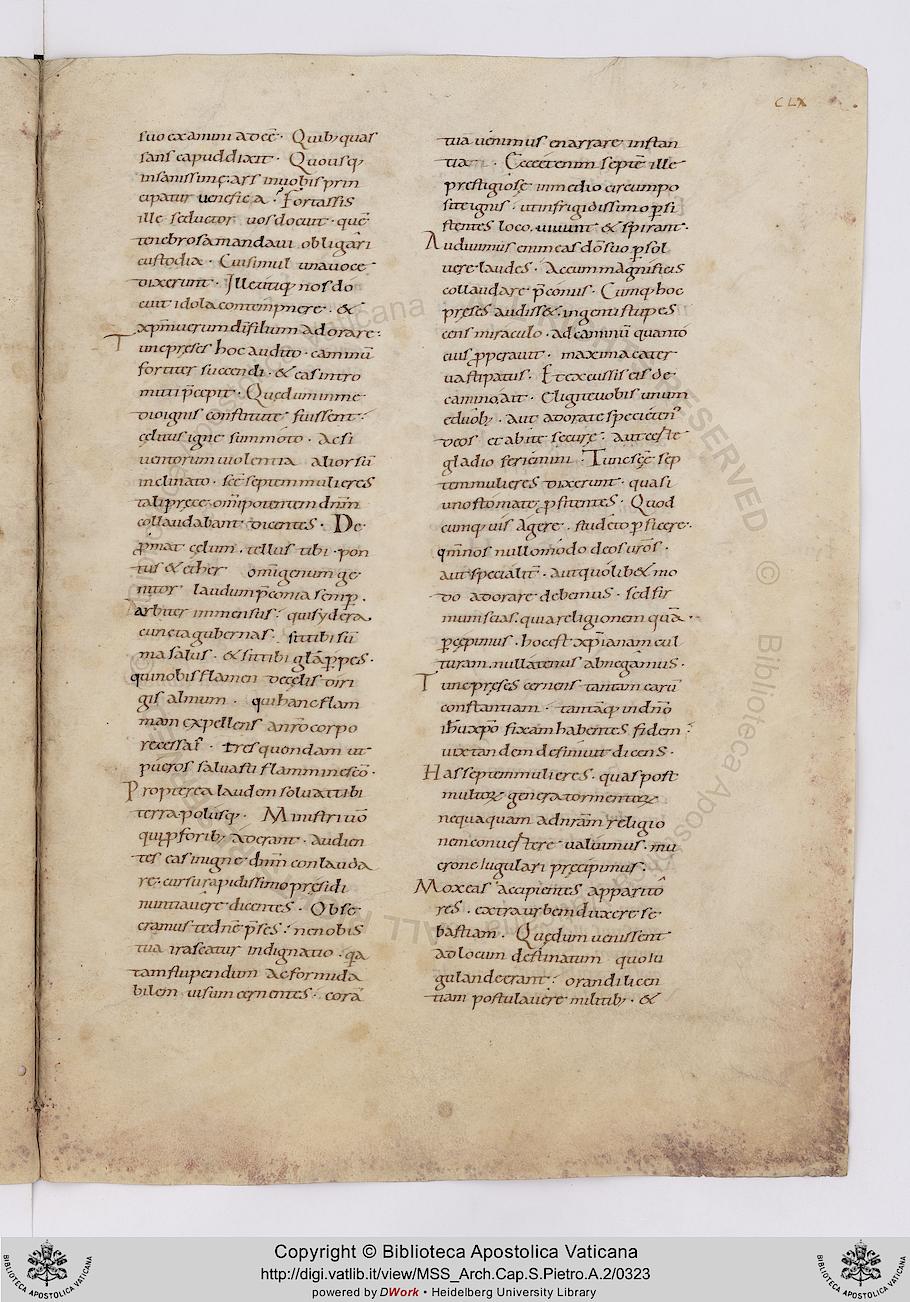 CLX
suo examini adeē· Quib; quas
sans capud dixit· Quousq;
insanissimę· ars in uobis prin
cipatur uenefica· Fortassis
ille seductor uos docuit· quę̄
tenebrosa mandaui obligari
custodia· Cui simul una uoce
dixerunt· Ille utiq; nos do
cuit idola contempnere· &
xp̄m uerum dī filium adorare·
Tunc preses hoc audito· caminū
fortiter succendi· & eas intro
mitti p̄cepit· Quę dum in me
dio ignis constitutę fuissent·
cęlitus igne summoto· ac si
uentorum uiolentia aliorsū
inclinato· scę̄ septem mulieres
tali prece omīpotentem dnm̄
collaudabant dicentes· De
p̱mat cęlum· tellus tibi· pon
tus & ether omīgenum ge
nitor laudum p̄conia semp̱·
arbiter immensus· qui sydera
cuncta gubernas· sit tibi sū
ma salus· & sit tibi glā p̱pes·
qui nobis flamen de cęlis diri
gis almum· qui hanc flam
mam expellens a nr̄o corpo
re cessas· tres quondam ut
pueros saluasti flamminescō·
Propterea laudem soluat tibi
terra polusq;· Ministri uō
qui p̱ forib; aderant· audien
tes eas in igne dnm̄ conlauda
re· cursu rapidissimo presidi
nuntiauere dicentes· Obse
cramus te dn̄e p̄ses· ne nobis
tua irascatur indignatio· qa
tam stupendum ac formida
bilem uisum cernentes· corā
tua uenimus enarrare instan
tia· Ecce etenim septē ille
prestigiose in medio circumpo
siti ignis· ut in frigidissimo p̱si
stentes loco, uiuunt & spirant·
Audiuimus enim eas dō suo p̱sol
uere laudes· Ac cum magnificis
collaudare p̄coniis· Cumq; hoc
preses audisset· ingenti stupes
cens miraculo· ad caminū quanto
cius p̱perauit· maxima cater
ua stipatus· Et excussis eis de
camino, ait· Eligite uobis unum
e duob;· aut adorate specietenꝰ
deos et abite secure· aut certe
gladio feriemini· Tunc scę̄ sep
tem mulieres dixerunt· quasi
uno stomate p̱fitentes· Quod
cumq; uis agere· studeto p̱ficere·
qm̄ nos nullo modo deos uros·
aut specialit̄· aut quolib& mo
do adorare debemus· sed fir
mum scias· quia religionem quā·
p̱cepimus· hoc est xp̄ianam cul
turam· nullatenus abnegamus·
Tunc preses cernens tantam earū
constantiam· tantāq; in dn̄o
ihū xp̄o fixam habentes fidem·
uix tandem definiuit dicens·
Has septem mulieres· quas post
multoꝝ genera tormentoꝝ
nequaquam ad nr̄am religio
nem conuertere ualuimus· mu
crone iugulari precipimus·
Mox eas accipientes apparito
res· extra urbem duxere se
bastiam· Quę dum uenissent
ad locum destinatum quo iu
gulande erant· orandi licen
tiam postulauere militib;· &
Copyright © Biblioteca Apostolica Vaticana
http://digi.vatlib.it/view/MSS_Arch.Cap.S.Pietro.A.2/0323
powered by DWork • Heidelberg University Library